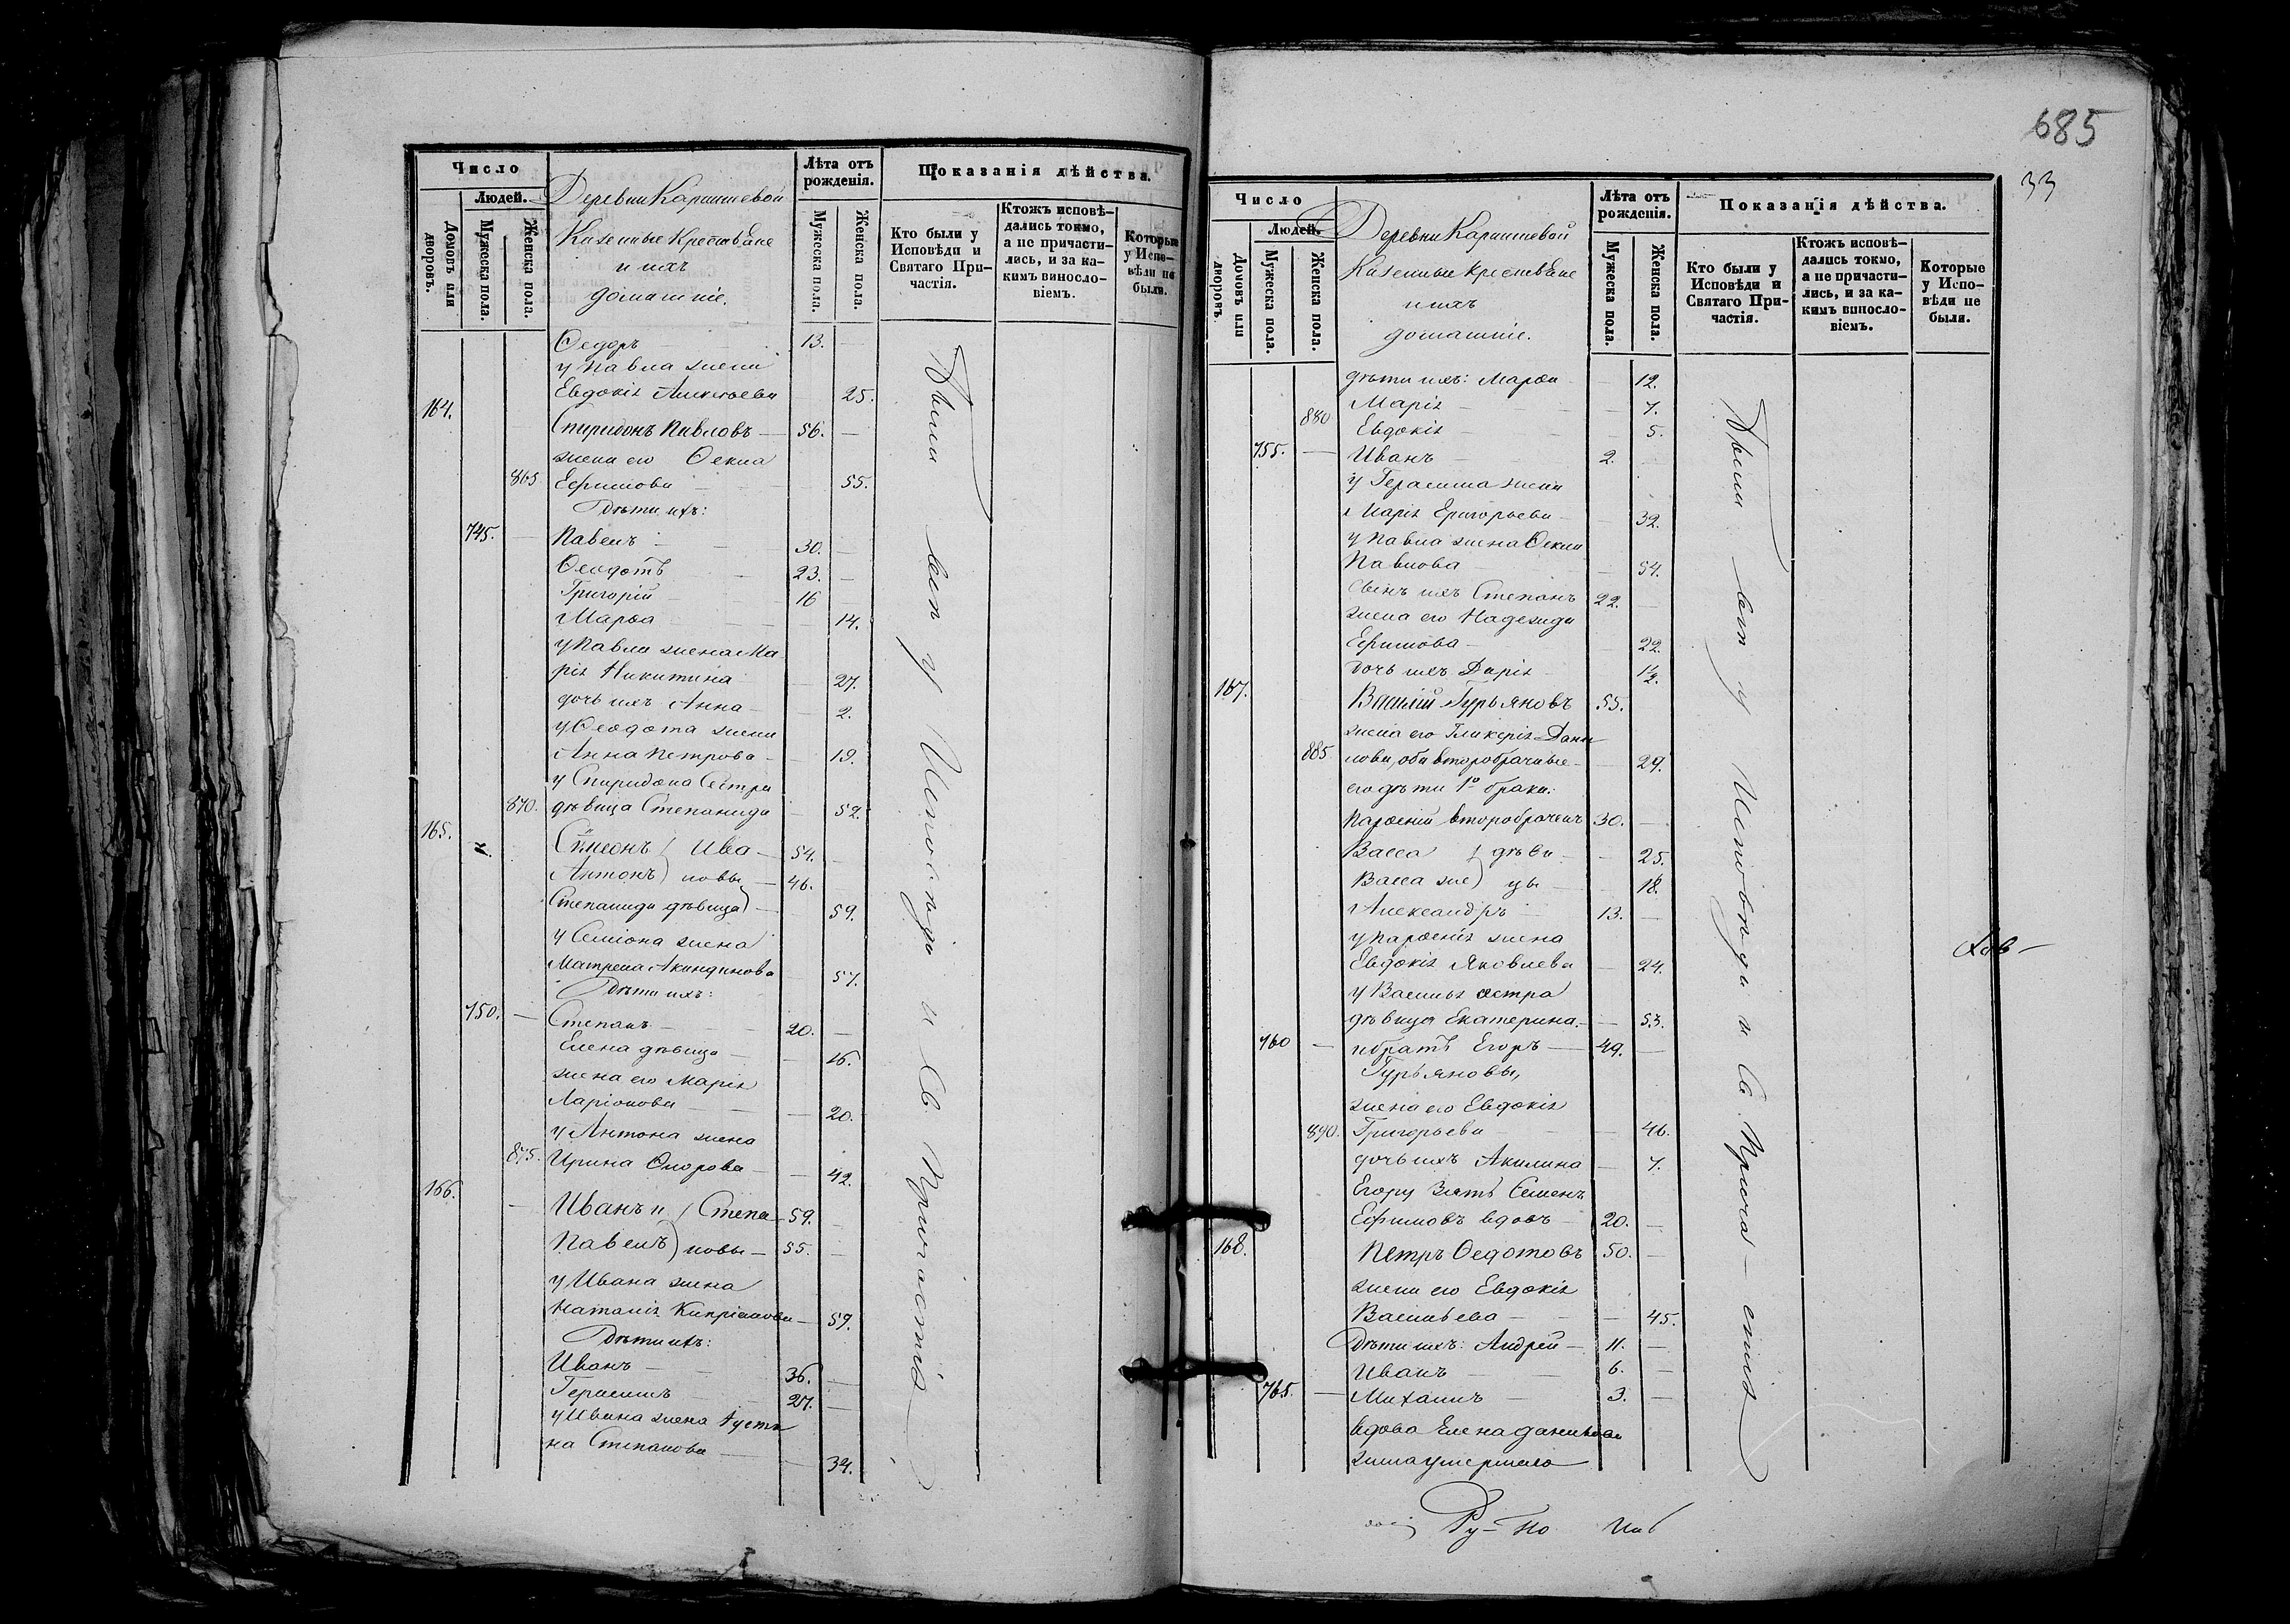 Число
Людей.
Домовъ или дворовъ.
Мужеска пола.
Женска пола.
Деревни Каришевой
Казенные Крестьяне
и ихъ
домашніе.
Лѣта отъ рожденія.
Мужеска пола.
Женска пола.
Показанія дѣйства.
Кто были у Исповѣди и Святаго Причастія.
Ктожъ исповѣдались токмо, а не причастились, и за какимъ винословіемъ.
Которые у Исповѣди не были.
Ѳедоръ 13.
у Павла жена
Евдокія Алексѣева 25.
164. Спиридонъ Павловъ 56.
жена его Ѳекла
865 Ефимова 55.
Дѣти ихъ:
745. Павелъ 30.
Ѳеодотъ 23.
Григорій 16
Марѳа 14.
у Павла жена Ма
рія Никитина 27.
дочь ихъ Анна 2.
у Ѳеодота жена
Анна Петрова 19.
у Спиридона Сестра
870. дѣвица Степанида 52.
165. Симеонъ Ива 54.
Антонъ новы 46.
Степанида дѣвица 59.
у Семіона жена
Матрена Акиндинова 57.
Дѣти ихъ:
750. Степанъ 20.
Елена дѣвица 16.
жена его Марія
Ларіонова 20.
у Антона жена
875. Ирина 42.
166. Иванъ и Степа 59.
Павелъ новы 55.
у Ивана жена
Наталія Кипріанова 59.
Дѣти ихъ:
Иванъ 36.
Герасимъ 27.
у Ивана жена Аусти
на Степанова 34.
Были всѣ у Исповѣди и Св. Причастія
685
33
Число
Людей.
Домовъ или дворовъ.
Мужеска пола.
Женска пола.
Деревни Каришевой
Казенные крестьяне
и ихъ
домашніе.
Лѣта отъ рожденія.
Мужеска пола.
Женска пола.
Показанія дѣйства.
Кто были у Исповѣди и Святаго Причастія.
Ктожъ исповѣдались токмо, а не причастились, и за какимъ винословіемъ.
Которые у Исповѣди не были.
дѣти ихъ: Марѳа 12.
Марія 7.
880 Евдокія 5.
755. Иванъ 2.
у Герасима жена
Марія Григорьева 32.
у Павла жена Ѳекла
Павлова 54.
Сынъ ихъ Степанъ 22.
жена его Надежда
Ефимова 22.
дочь ихъ Дарія 1/2.
167. Василій Гурьяновъ 55.
жена его Гликерія Дани
885 лова, оба второбрачные 29.
его дѣти 1о брака:
Парѳеній второбрачен 30.
Васса дѣви 25.
Васса же цы 18.
Александръ 13.
у Парѳенія жена
Евдокія Яковлева 24.
у Василья сестра
дѣвица Екатерина 53.
760 и братъ Егоръ 49.
Гурьяновы,
жена его Евдокія
890. Григорьева 46.
дочь ихъ Акилина 7.
Егору Зять Семенъ
Ефимовъ вдовъ 20.
168. Петръ Ѳедотовъ 50.
жена его Евдокія
Васильева 45.
Дѣти ихъ: Андрей 11.
Иванъ 6.
765. Михаилъ 3.
вдова Елена Данилова
Были всѣ у Исповѣди и Св. Прича-стія